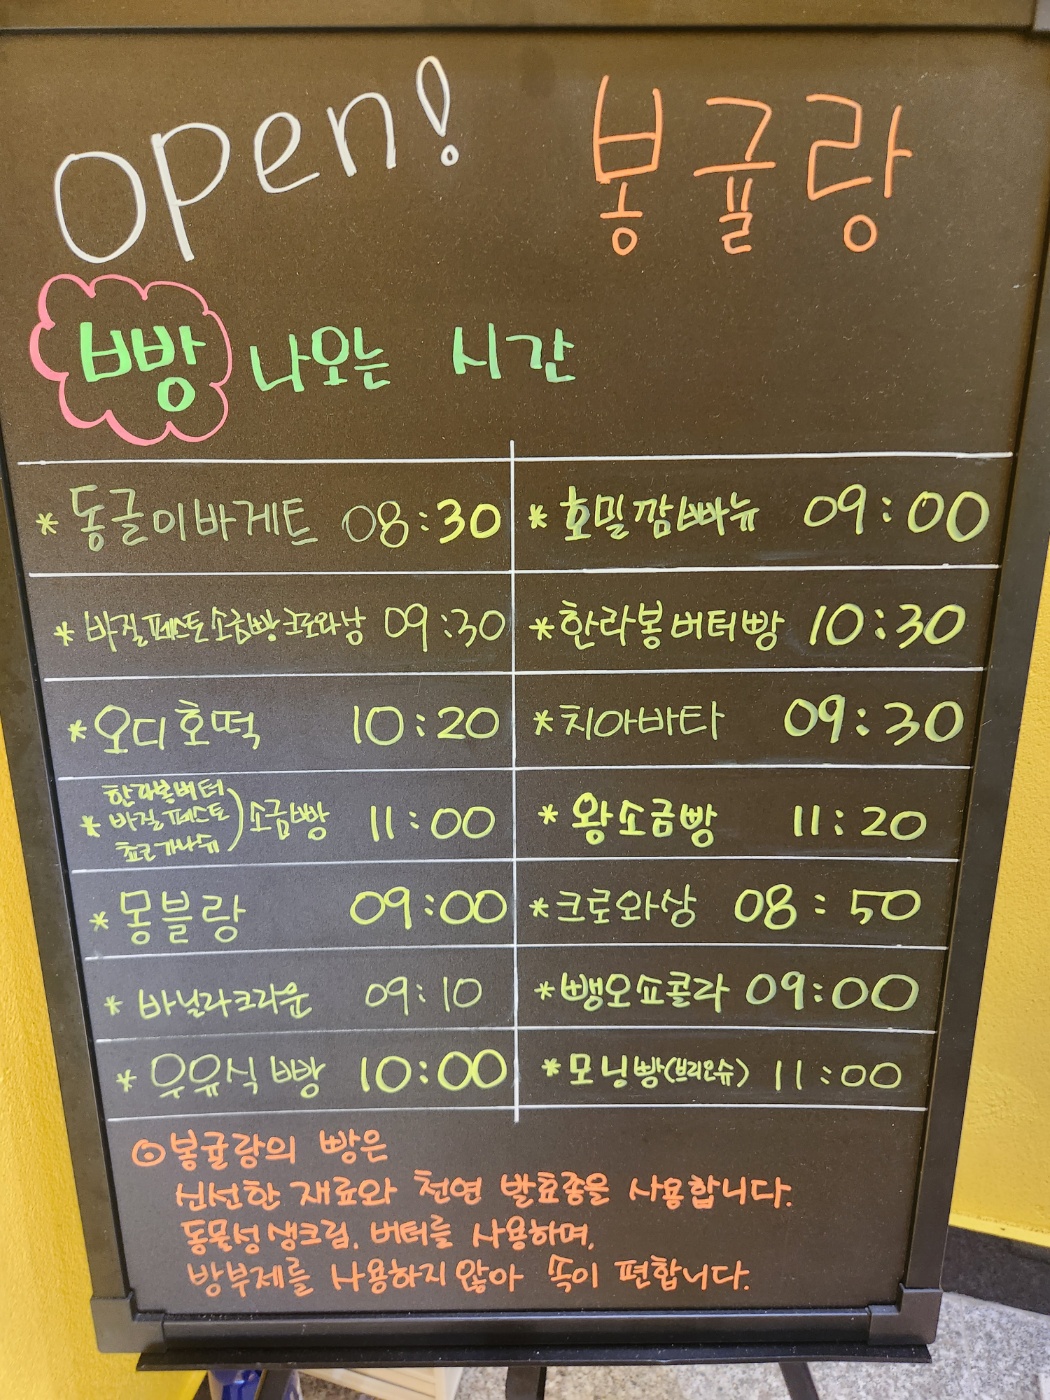 open! 봉귤랑
빵 나오는 시간
* 동글이바게트 08:30
* 호밀깜빠뉴 09:00
* 바질페스토소금빵크로와낭 09:30
* 한라봉버터빵 10:30
* 오디호떡 10:20
* 치아바타 09:30
* 한라봉버터
바질페스토
쵸코가나슈
) 소금빵 11:00
* 왕소금빵 11:20
* 몽블랑 09:00
* 크로와상 08:50
* 바닐라크라운 09:10
* 뺑오쇼콜라 09:00
* 우유식빵 10:00
* 모닝빵(브리오슈) 11:00
⊙ 봉귤랑의 빵은
신선한 재료와 천연 발효종을 사용합니다.
동물성생크림, 버터를 사용하며,
방부제를 사용하지않아 속이 편합니다.